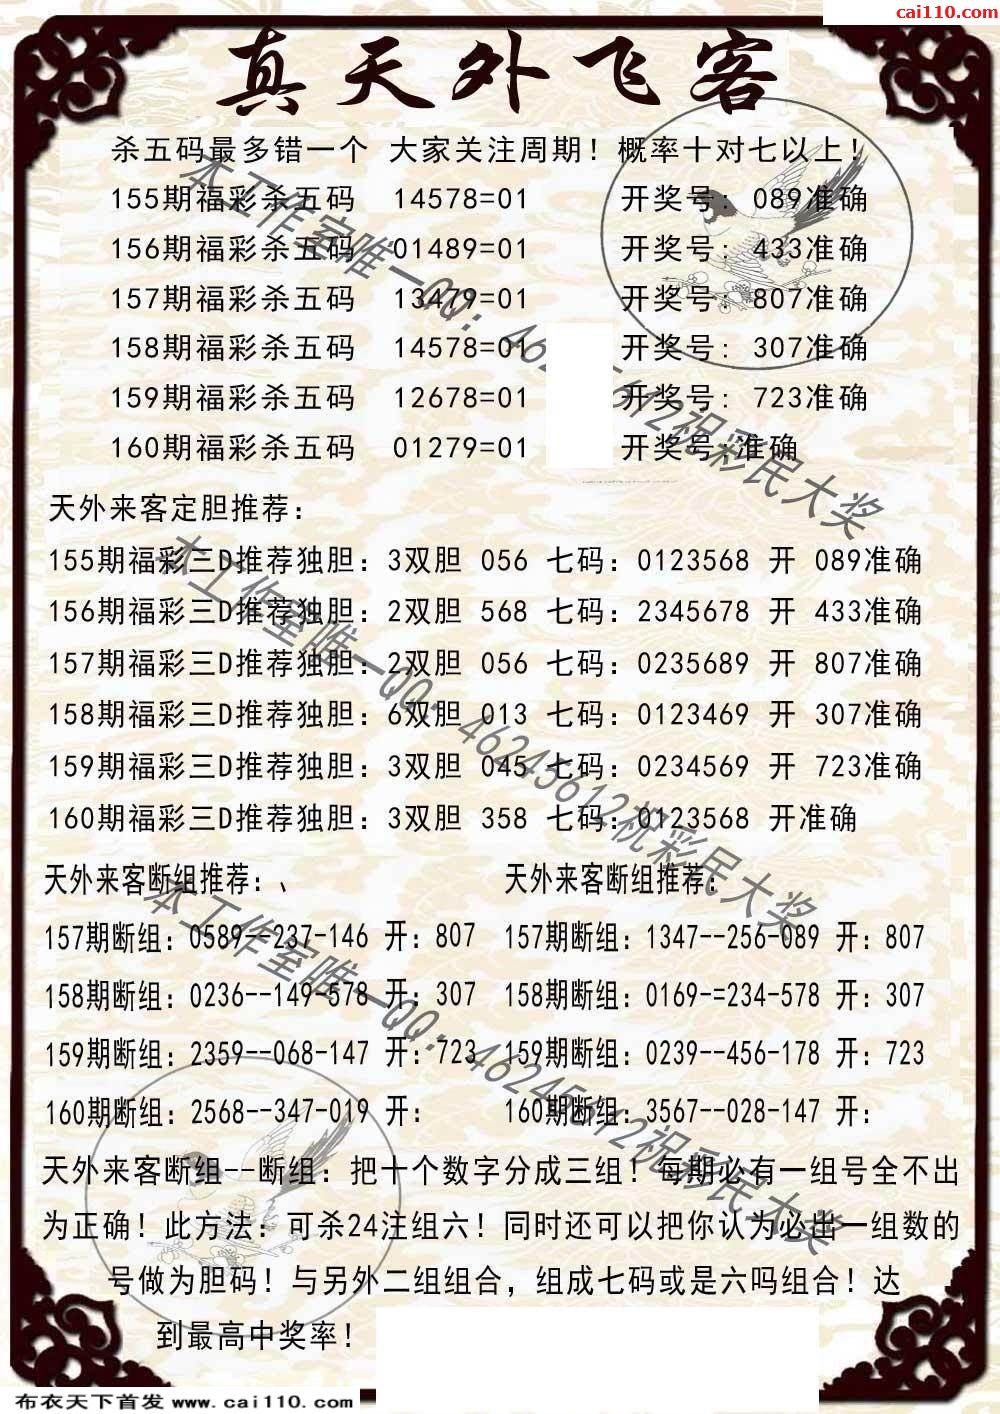 cai110.com
真天外飞客
杀五码最多错一个 大家关注周期！概率十对七以上！
155期福彩杀五码 14578=01 开奖号: 089准确
156期福彩杀五码 01489=01 开奖号: 433准确
157期福彩杀五码 13479=01 开奖号: 807准确
158期福彩杀五码 14578=01 开奖号: 307准确
159期福彩杀五码 12678=01 开奖号: 723准确
160期福彩杀五码 01279=01 开奖号:准确
本工作室唯一QQ: 46245612祝彩民大奖
天外来客定胆推荐:
155期福彩三D推荐独胆: 3双胆 056 七码: 0123568 开 089准确
156期福彩三D推荐独胆: 2双胆 568 七码: 2345678 开 433准确
157期福彩三D推荐独胆: 2双胆 056 七码: 0235689 开 807准确
158期福彩三D推荐独胆: 6双胆 013 七码: 0123469 开 307准确
159期福彩三D推荐独胆: 3双胆 045 七码: 0234569 开 723准确
160期福彩三D推荐独胆: 3双胆 358 七码: 0123568 开准确
本工作室唯一QQ: 46245612祝彩民大奖
天外来客断组推荐: 、 天外来客断组推荐:
157期断组: 0589--237-146 开: 807 157期断组: 1347--256-089 开: 807
158期断组: 0236--149-578 开: 307 158期断组: 0169-=234-578 开: 307
159期断组: 2359--068-147 开: 723 159期断组: 0239--456-178 开: 723
160期断组: 2568--347-019 开: 160期断组: 3567--028-147 开:
本工作室唯一QQ: 46245612祝彩民大奖
天外来客断组--断组: 把十个数字分成三组！每期必有一组号全不出
为正确！此方法: 可杀24注组六！同时还可以把你认为必出一组数的
号做为胆码！与另外二组组合, 组成七码或是六吗组合！达
到最高中奖率！
布衣天下首发 www.cai110.com